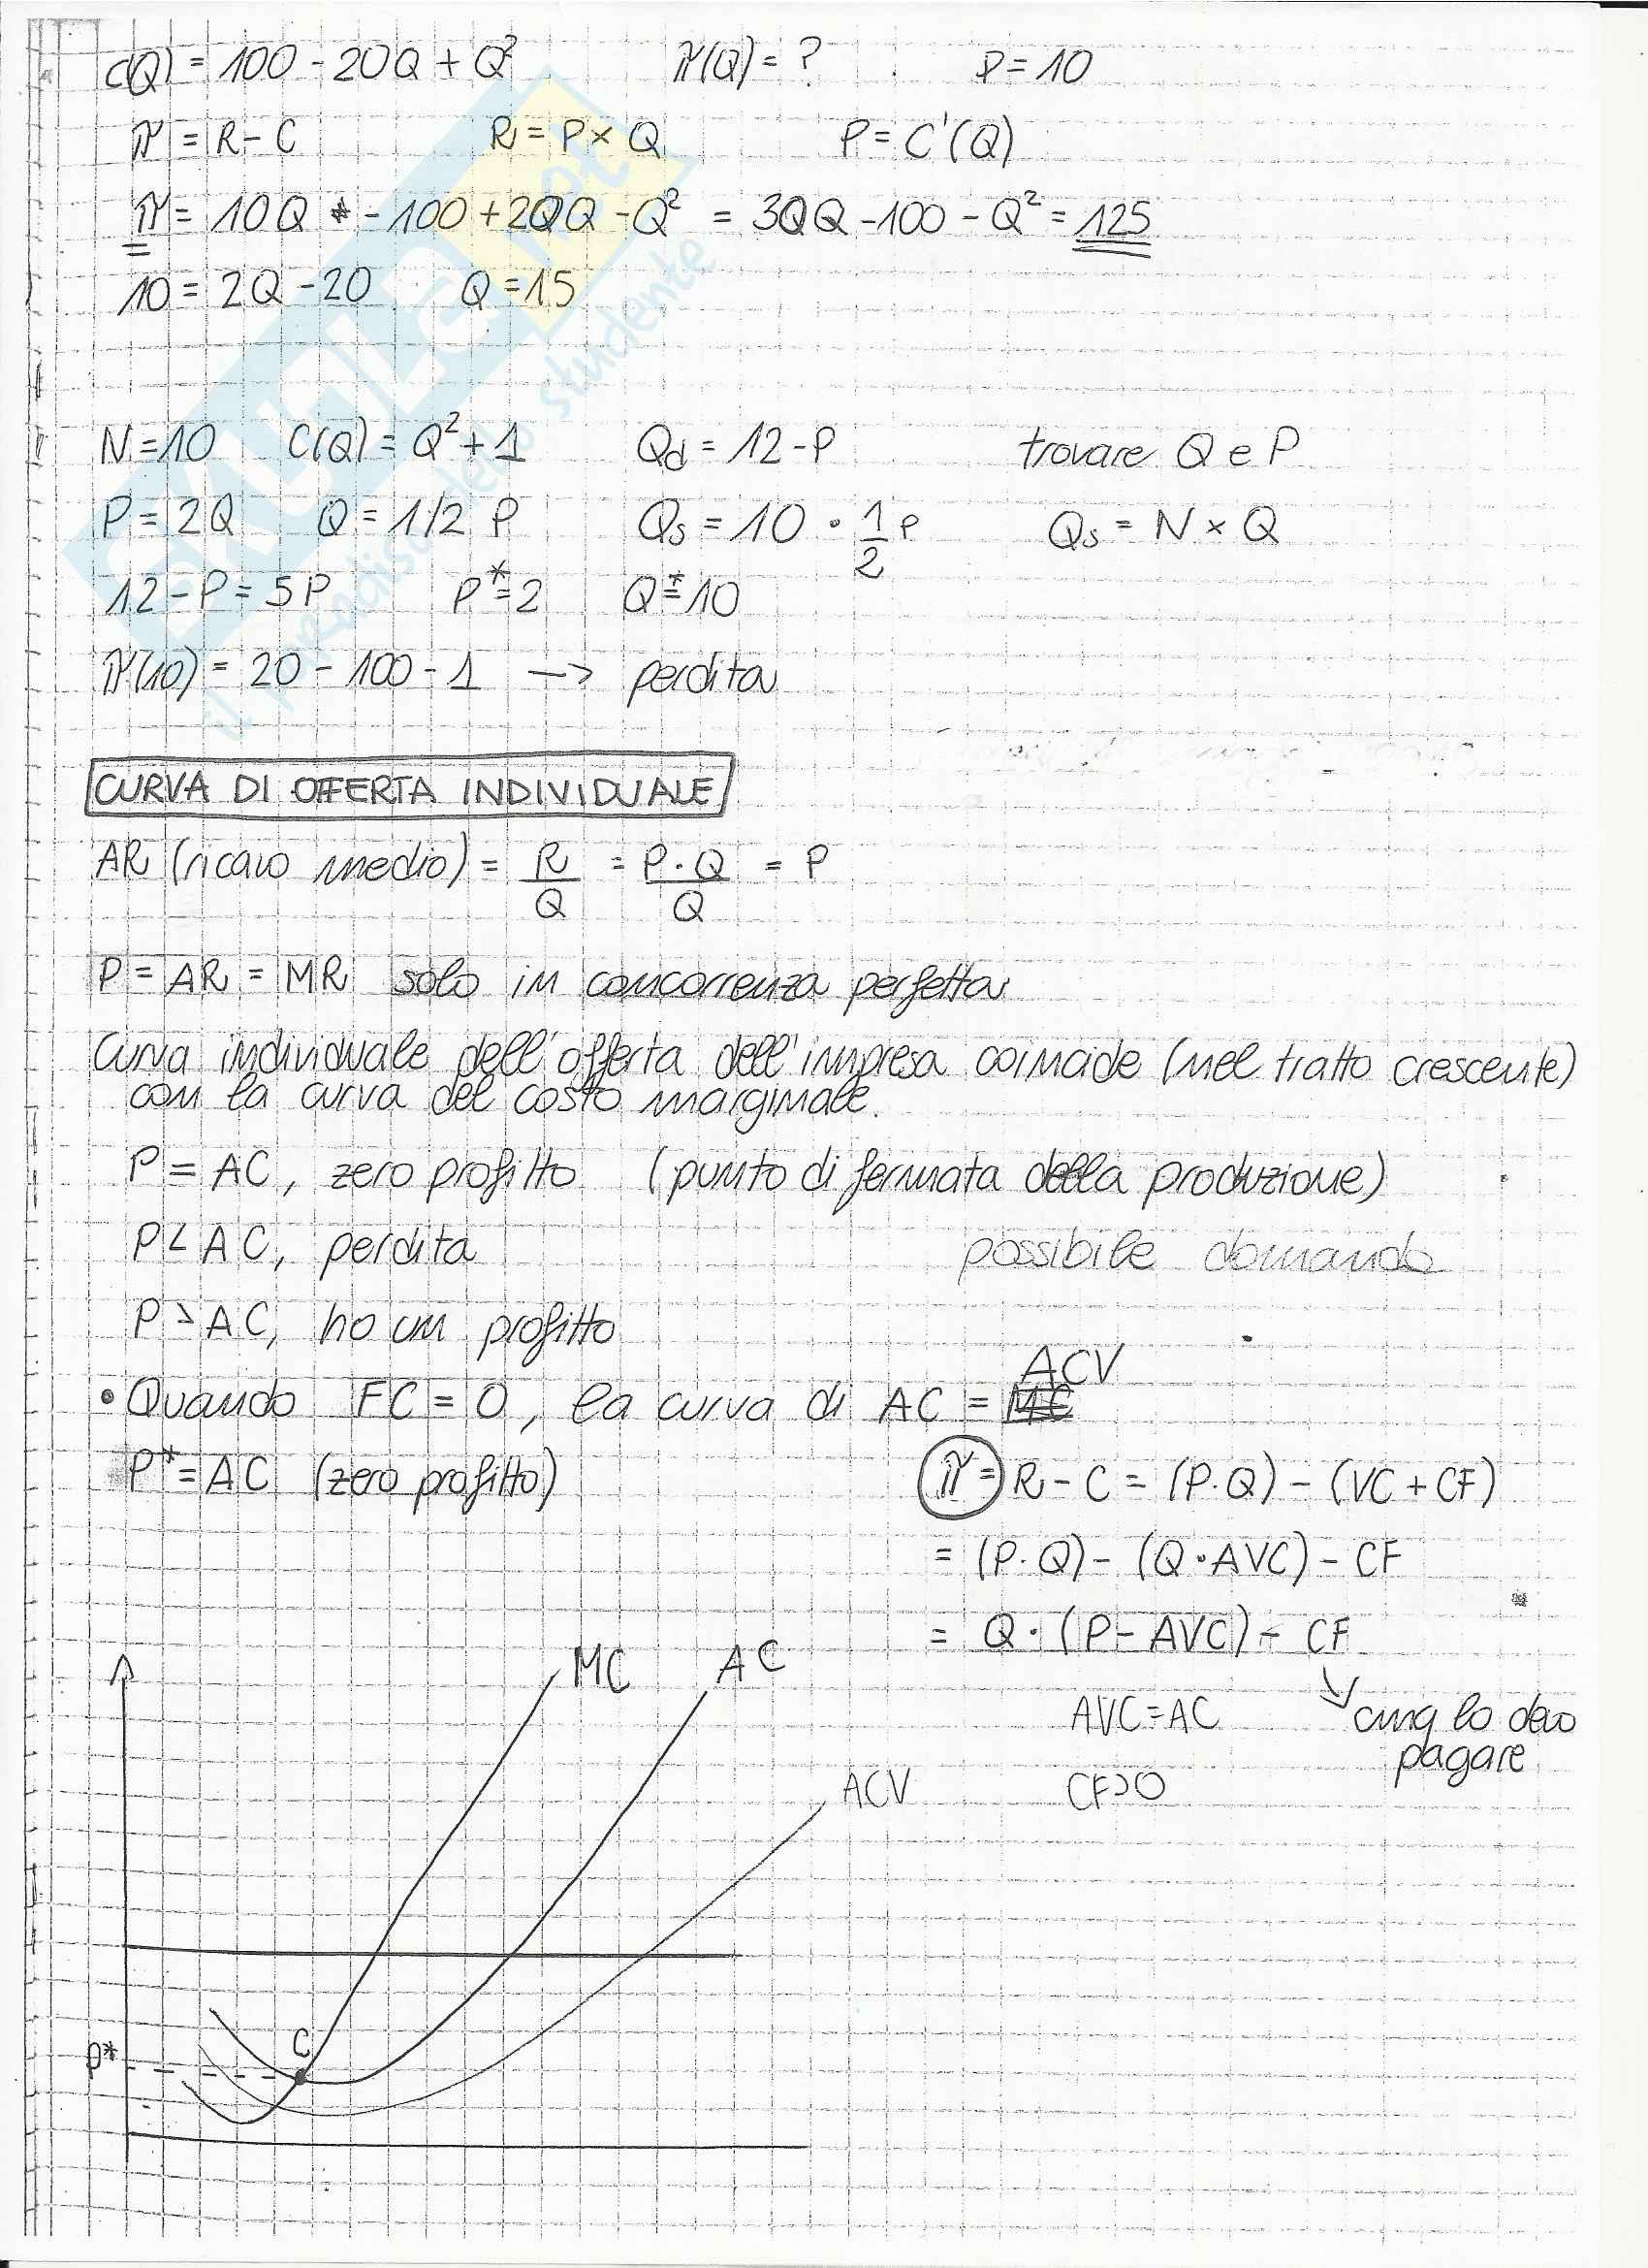 C(Q) = 100 - 20Q + Q² π(Q) = ? P = 10
π = R - C R = P × Q P = C'(Q)
π = 10Q - 100 + 20Q - Q² = 30Q - 100 - Q² = 125
10 = 2Q - 20 Q = 15
N = 10 C(Q) = Q² + 1 Qd = 12 - P trovare Q e P
P = 2Q Q = 1/2 P Qs = 10 · 1/2 P Qs = N × Q
12 - P = 5P P* = 2 Q* = 10
π(10) = 20 - 100 - 1 → perdita
CURVA DI OFFERTA INDIVIDUALE
AR (ricavo medio) = R/Q = P·Q/Q = P
P = AR = MR solo in concorrenza perfetta
Curva individuale dell'offerta dell'impresa coincide (nel tratto crescente)
con la curva del costo marginale.
P = AC, zero profitto (punto di fermata della produzione)
P < AC, perdita possibile domanda
P > AC, ho un profitto
• Quando FC = 0, la curva di AC = ACV
P* = AC (zero profitto) π = R - C = (P·Q) - (VC + CF)
= (P·Q) - (Q·AVC) - CF
= Q·(P - AVC) - CF
MC AC
AVC = AC cmq lo devo
pagare
ACV CF > 0
C
P*
studente